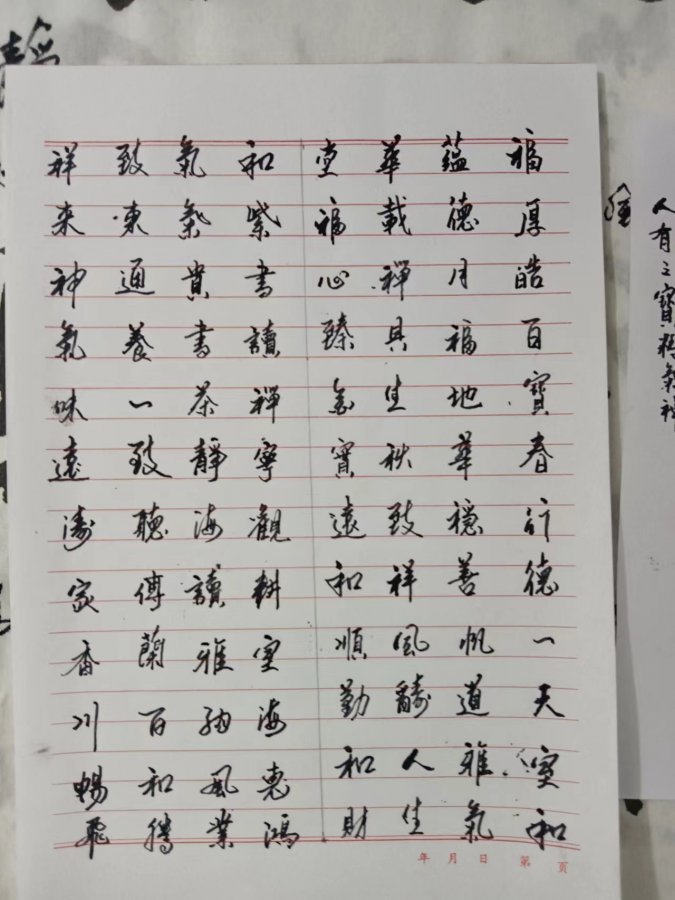 福蘊華堂
厚德載福
皓月禪心
百福具臻
寶地生金
春華秋實
行穩致遠
德善祥和
一帆風順
天道酬勤
室雅人和
和氣生財
和氣致祥
紫氣東來
書貴通神
讀書養氣
禪茶一味
寧靜致遠
觀海聽濤
耕讀傳家
室雅蘭香
海納百川
惠風和暢
鴻業騰飛
年 月 日 第 页
人有三寶精氣神